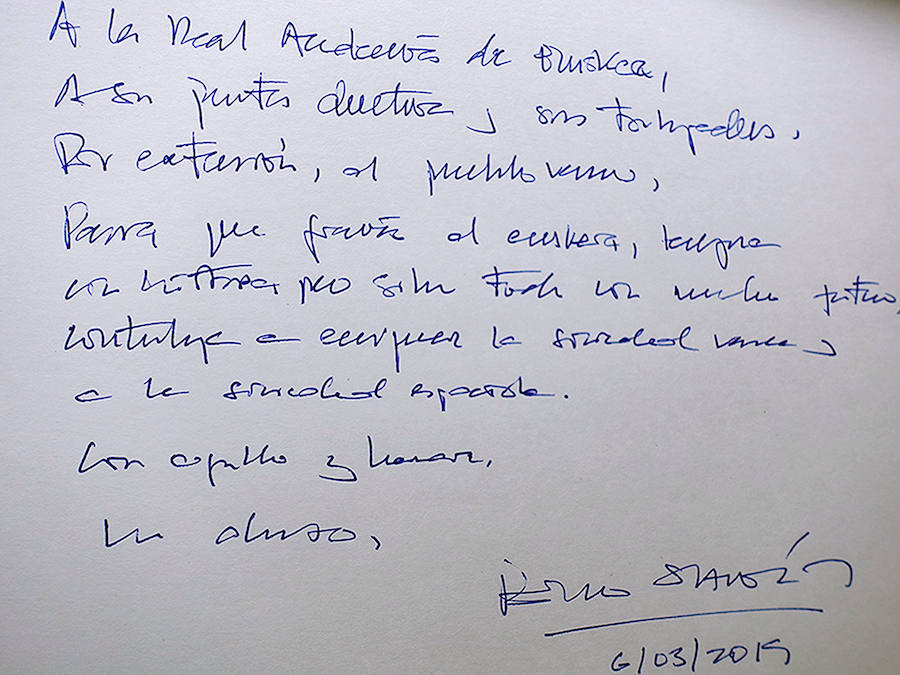 A la Real Academia de Euskera,
A su junta directiva y sus trabajadores.
Por extensión, al pueblo vasco,
Para que gracias al euskera, lengua
con historia pero sobre todo con mucho futuro,
contribuya a enriquecer la sociedad vasca y
a la sociedad española.
Con orgullo y honor.
Un abrazo,
Pedro Sánchez
6/03/2019